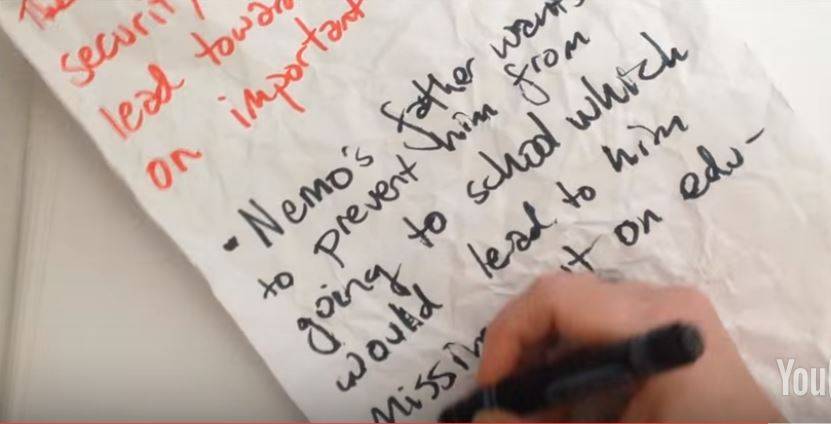 security
lead toward
on important
- Nemo's father wants
to prevent him from
going to school which
would lead to him
missin
it on edu-
You